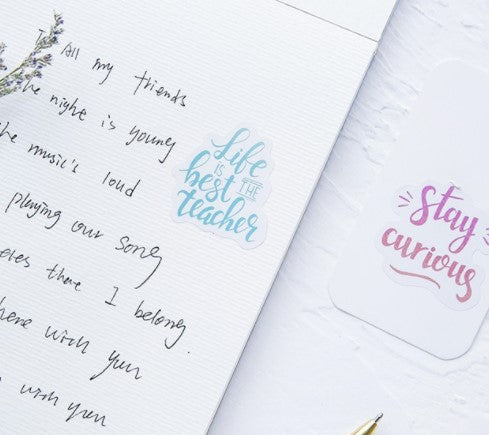 To All my friends
the night is young
the music's loud
playing our song
there I belong.
here with you
with you
Life
IS
best THE
teacher
stay
curious